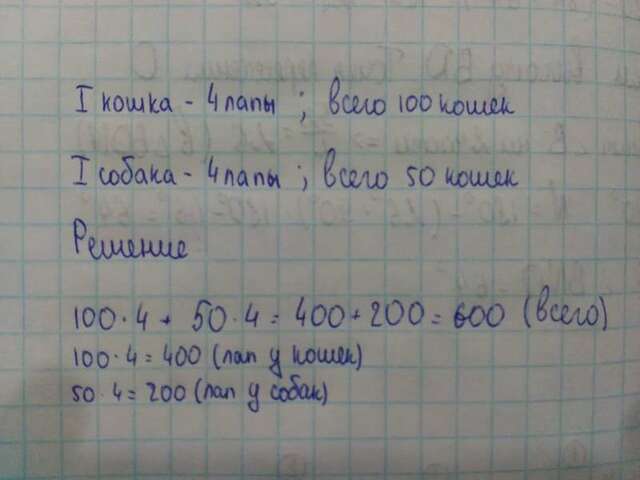 I кошка - 4 лапы ; всего 100 кошек
I собака - 4 лапы ; всего 50 кошек
Решение
100 · 4 + 50 · 4 = 400 + 200 = 600 (всего)
100 · 4 = 400 (лап у кошек)
50 · 4 = 200 (лап у собак)